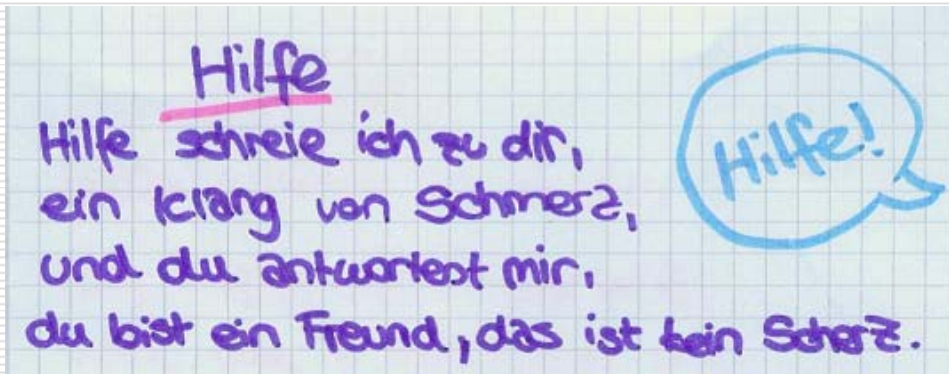 Hilfe
Hilfe schreie ich zu dir,
ein Klang von Schmerz,
und du antwortest mir,
du bist ein Freund, das ist kein Scherz.
Hilfe!